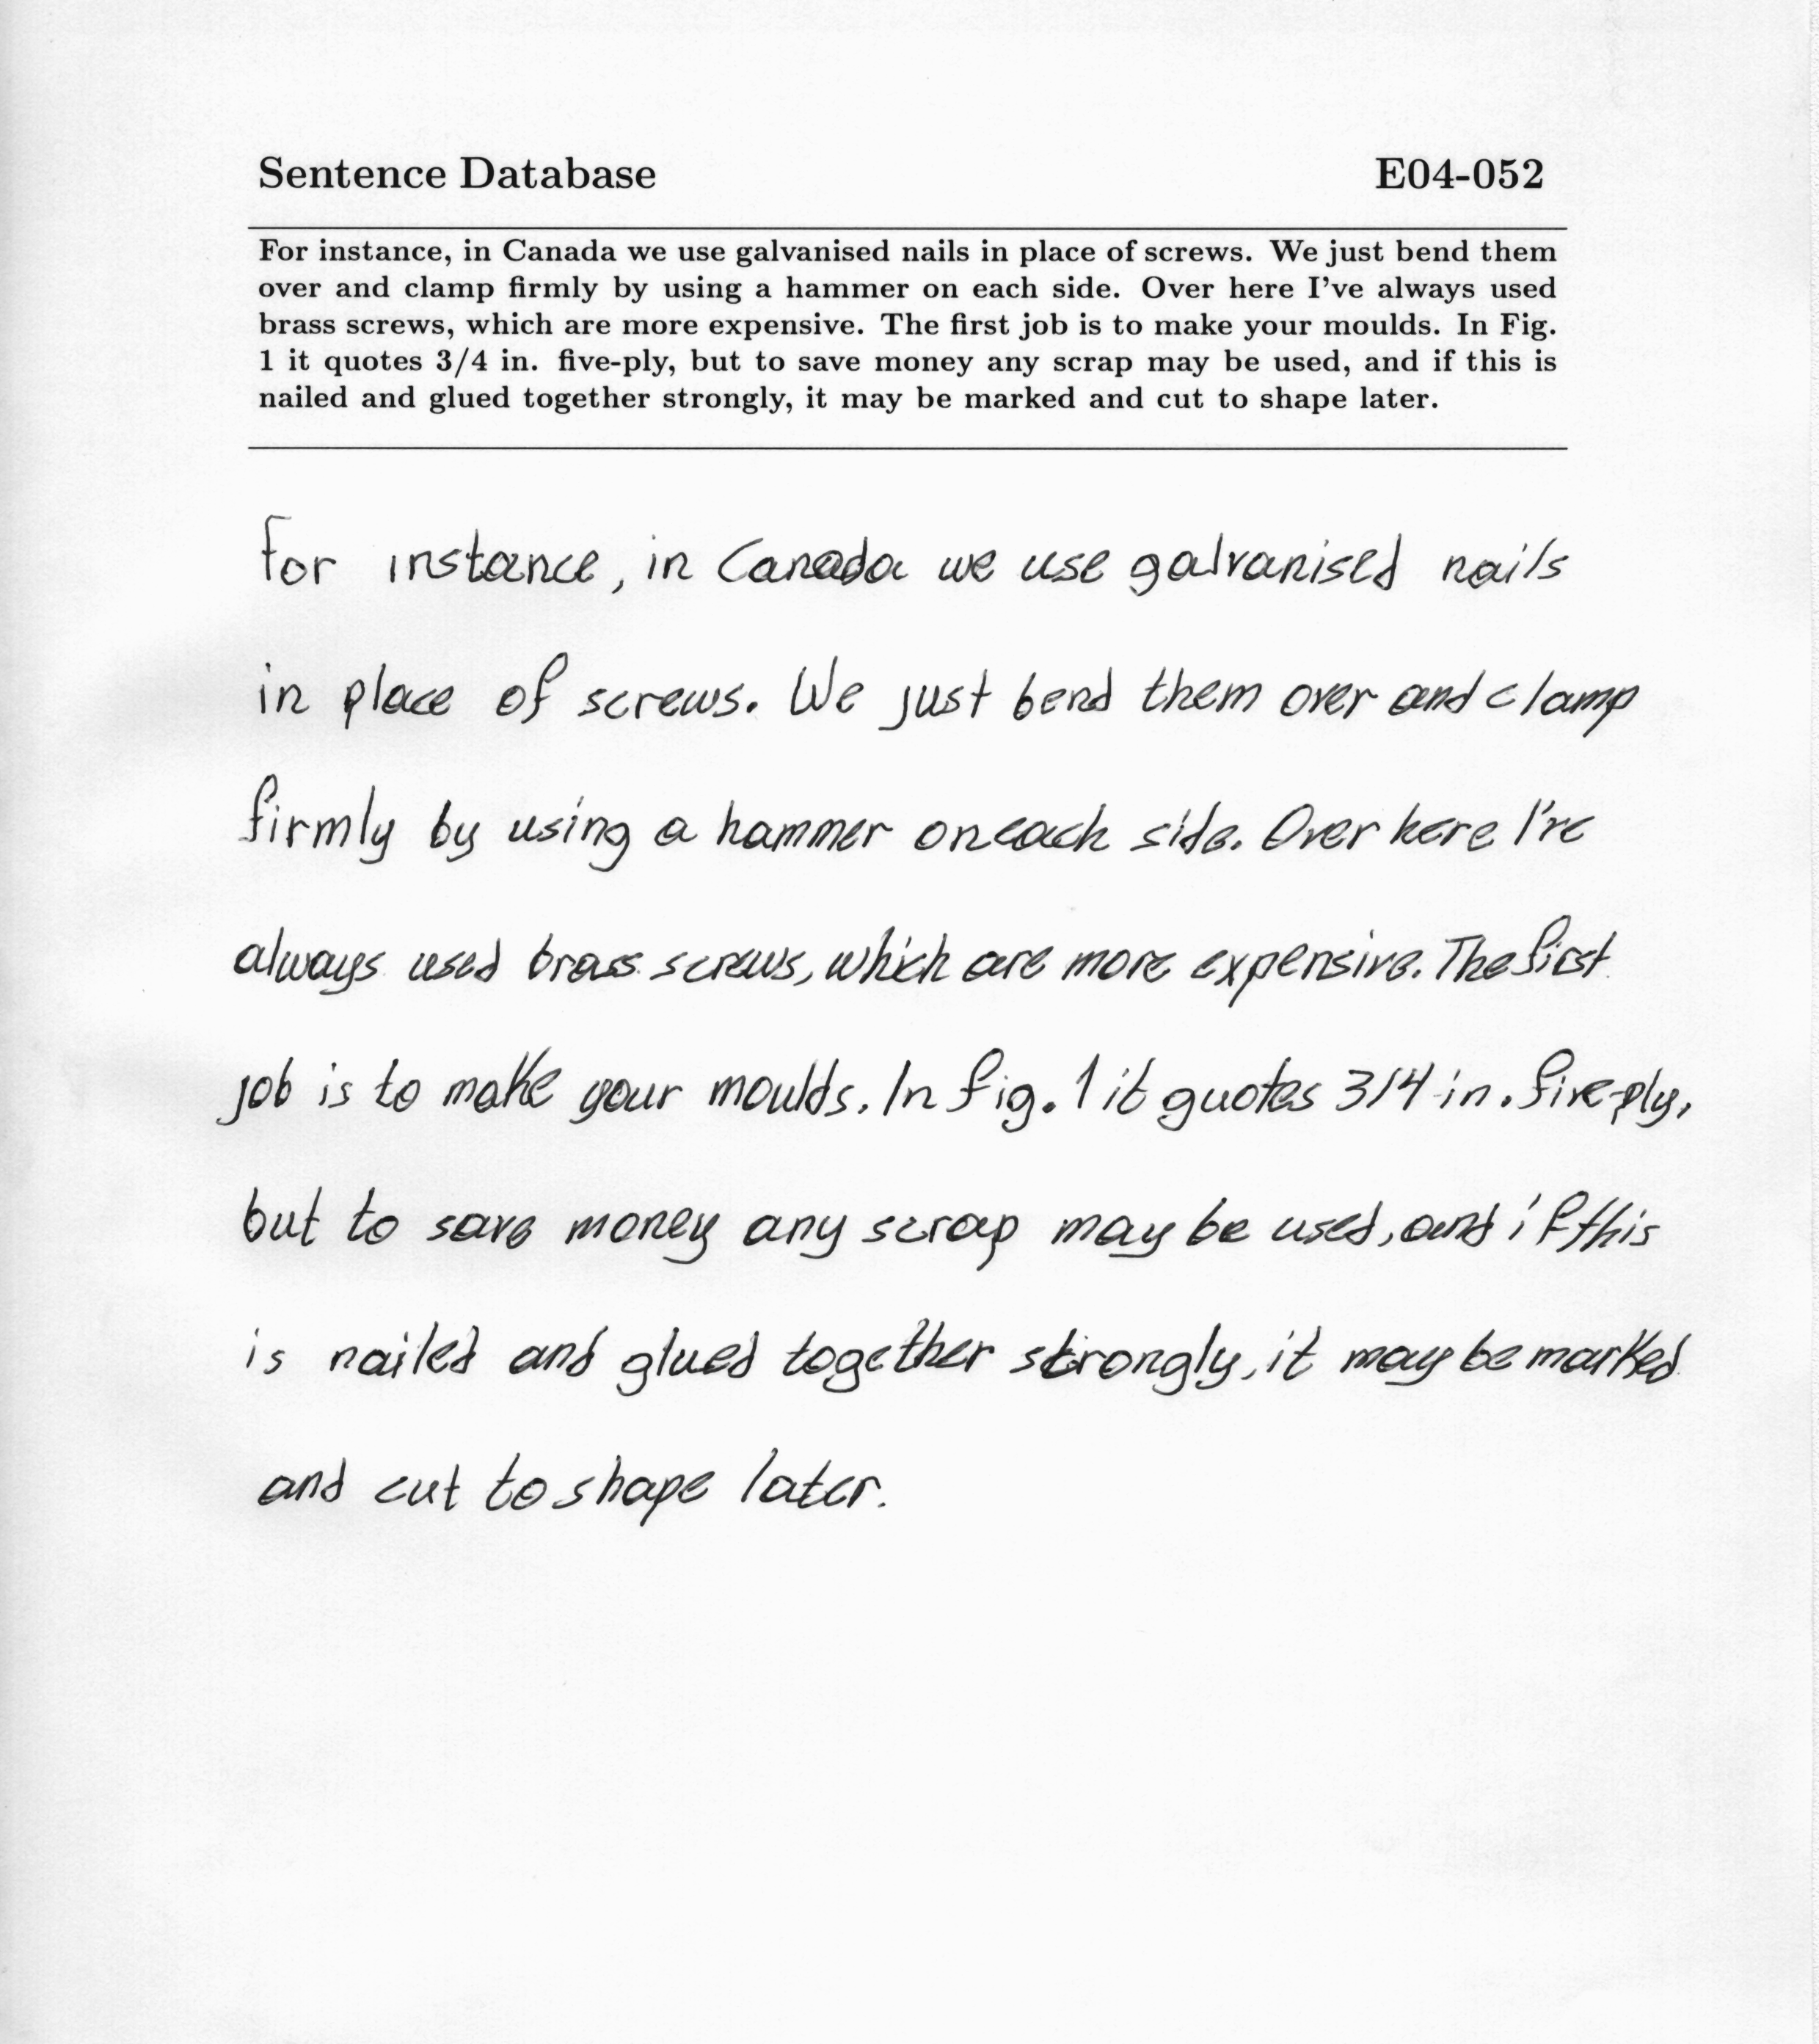 Sentence Database E04-052
For instance, in Canada we use galvanised nails in place of screws. We just bend them
over and clamp firmly by using a hammer on each side. Over here I've always used
brass screws, which are more expensive. The first job is to make your moulds. In Fig.
1 it quotes 3/4 in. five-ply, but to save money any scrap may be used, and if this is
nailed and glued together strongly, it may be marked and cut to shape later.
For instance, in Canada we use galvanised nails
in place of screws. We just bend them over and clamp
firmly by using a hammer on each side. Over here I've
always used brass screws, which are more expensive. The first
job is to make your moulds. In fig. 1 it quotes 3/4 in. five-ply,
but to save money any scrap may be used, and if this
is nailed and glued together strongly, it may be marked
and cut to shape later.